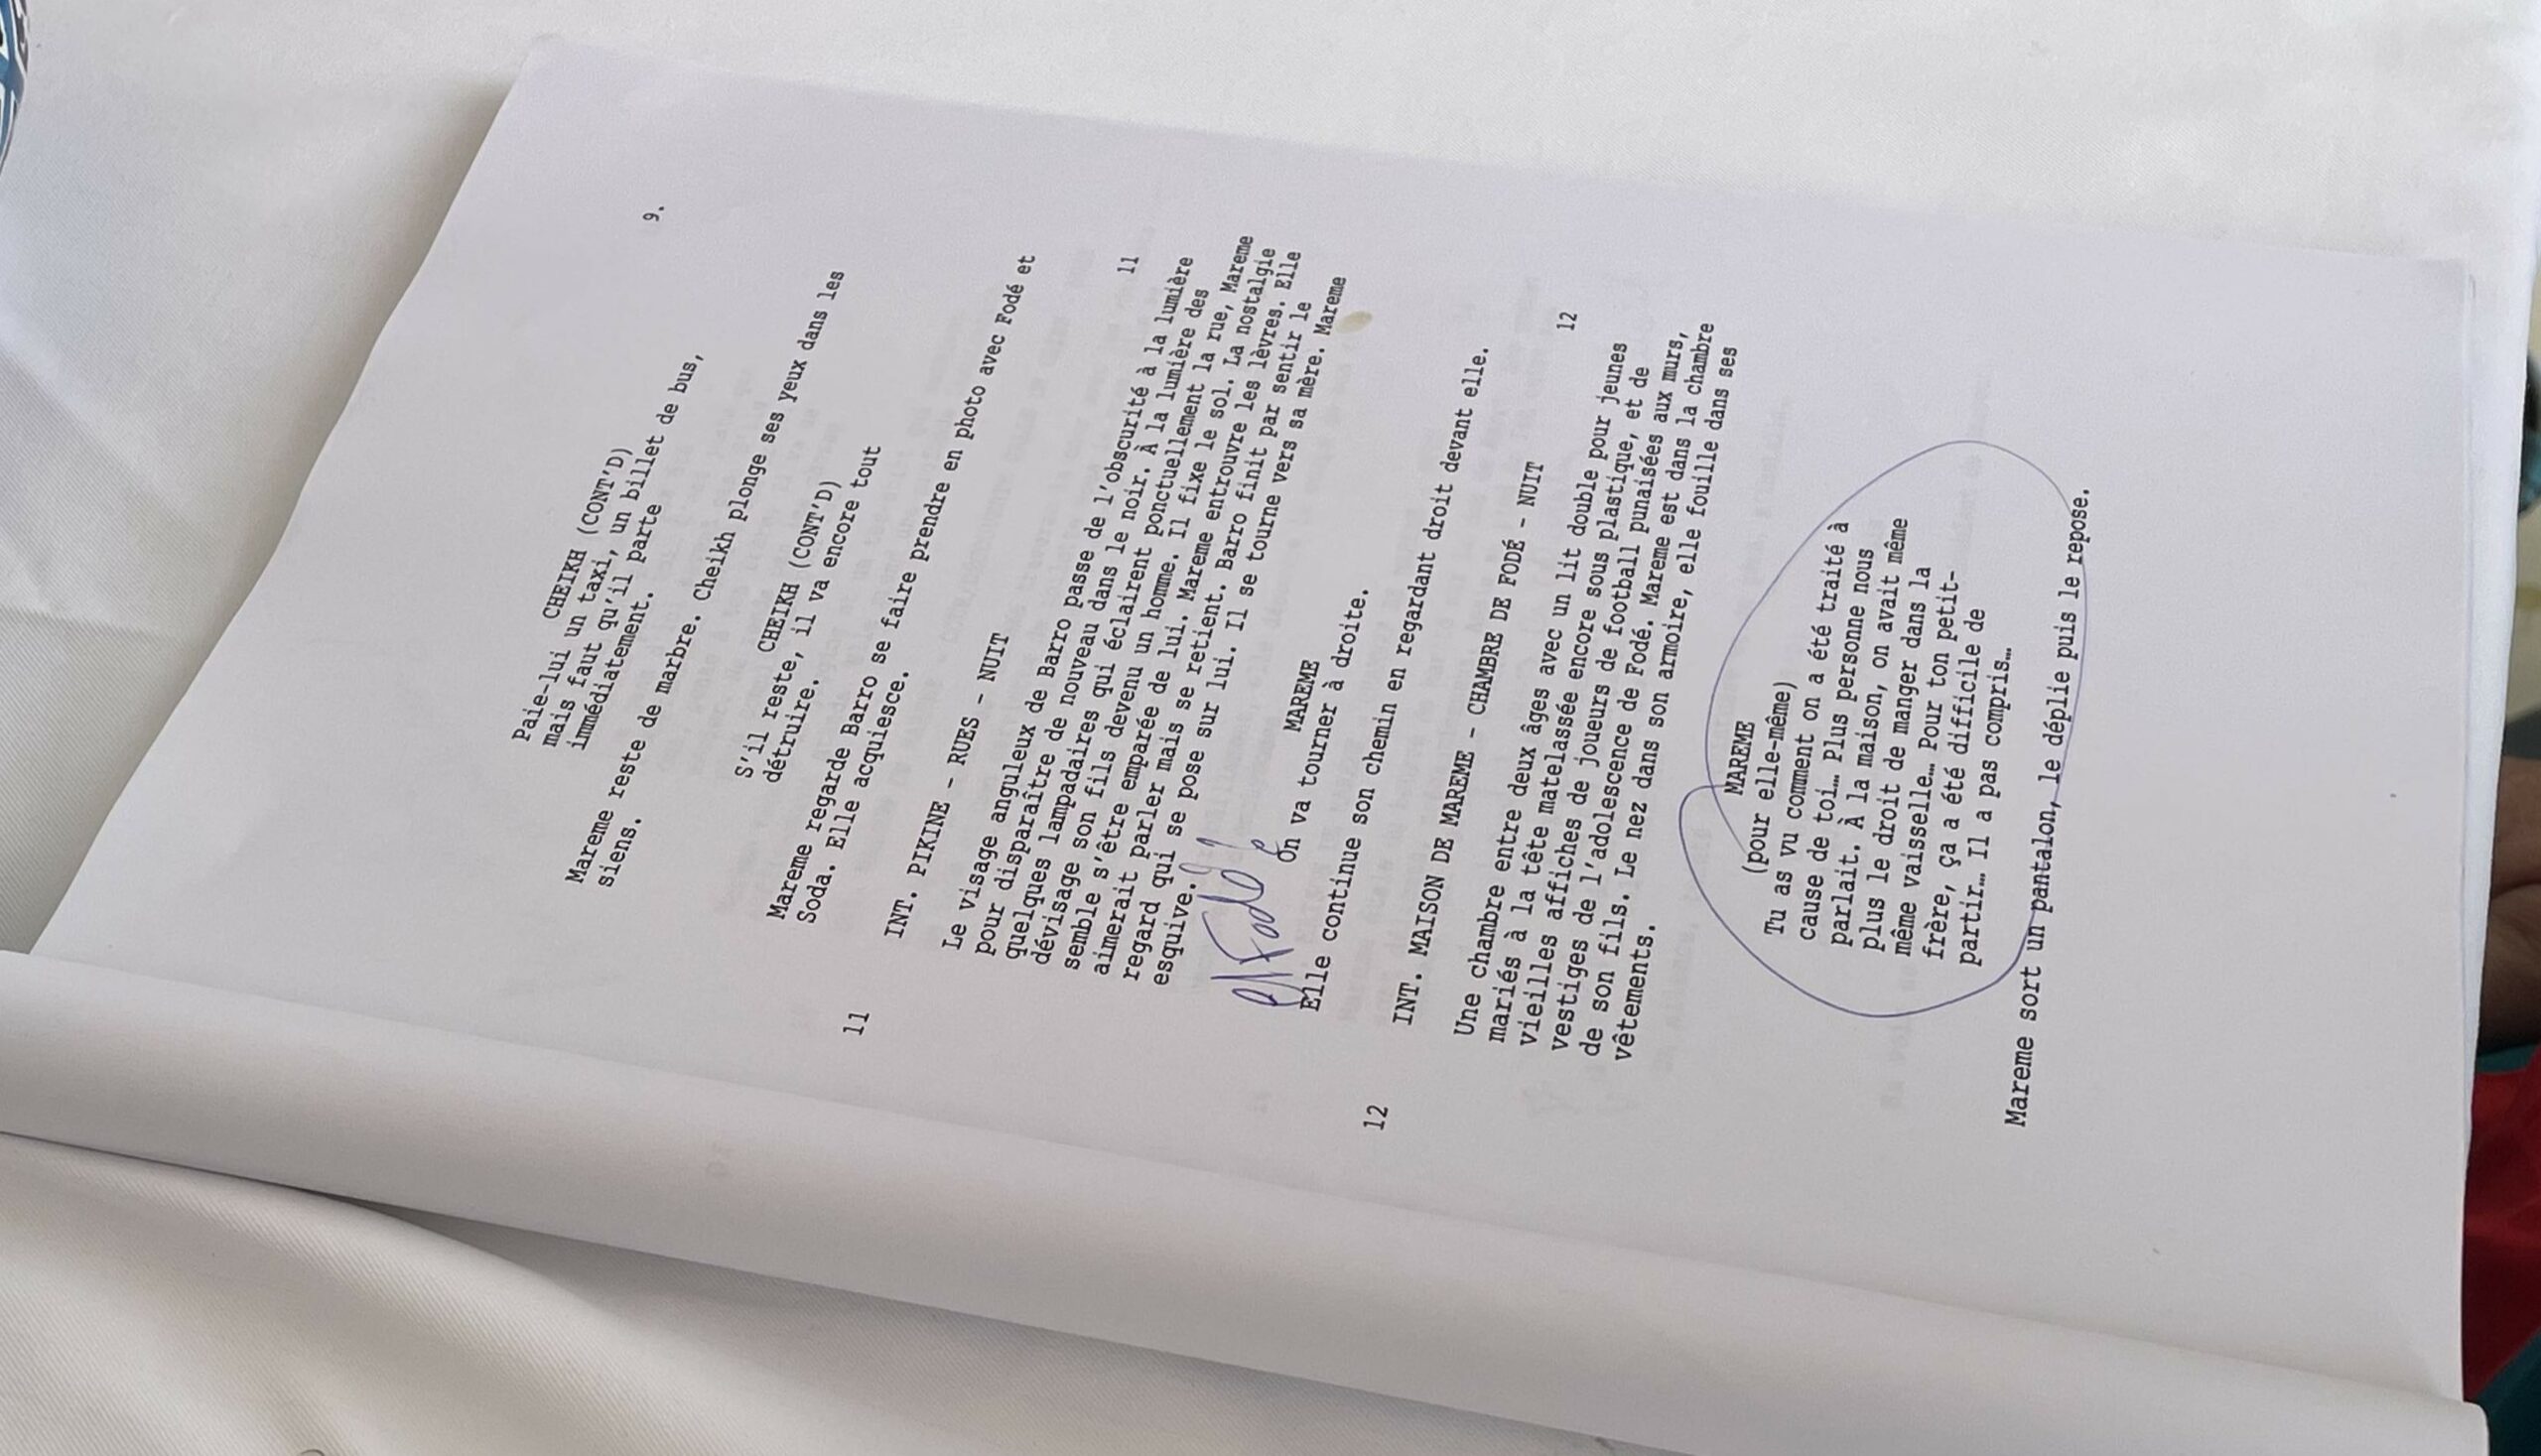 9.
CHEIKH (CONT'D)
Paie-lui un taxi, un billet de bus,
mais faut qu'il parte
immédiatement.
Mareme reste de marbre. Cheikh plonge ses yeux dans les
siens.
CHEIKH (CONT'D)
S'il reste, il va encore tout
détruire.
Mareme regarde Barro se faire prendre en photo avec Fodé et
Soda. Elle acquiesce.
11 INT. PIKINE - RUES - NUIT 11
Le visage anguleux de Barro passe de l'obscurité à la lumière
pour disparaître de nouveau dans le noir. À la lumière des
quelques lampadaires qui éclairent ponctuellement la rue, Mareme
dévisage son fils devenu un homme. Il fixe le sol. La nostalgie
semble s'être emparée de lui. Mareme entrouvre les lèvres. Elle
aimerait parler mais se retient. Barro finit par sentir le
regard qui se pose sur lui. Il se tourne vers sa mère. Mareme
esquive.
MAREME
On va tourner à droite.
Elle continue son chemin en regardant droit devant elle.
12 INT. MAISON DE MAREME - CHAMBRE DE FODÉ - NUIT 12
Une chambre entre deux âges avec un lit double pour jeunes
mariés à la tête matelassée encore sous plastique, et de
vieilles affiches de joueurs de football punaisées aux murs,
vestiges de l'adolescence de Fodé. Mareme est dans la chambre
de son fils. Le nez dans son armoire, elle fouille dans ses
vêtements.
MAREME
(pour elle-même)
Tu as vu comment on a été traité à
cause de toi… Plus personne nous
parlait. À la maison, on avait même
plus le droit de manger dans la
même vaisselle… Pour ton petit-
frère, ça a été difficile de
partir… Il a pas compris…
Mareme sort un pantalon, le déplie puis le repose.